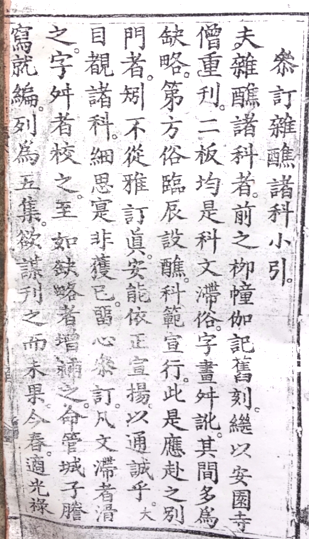 叅訂雜醮諸科小引。
夫雜醮諸科者。前之柳幢伽記舊刻。繼以安國寺
僧重刊。二板均是科文滯俗。字畫舛訛。其間多爲
缺略。第方俗臨辰設醮。科範宣行。此是應赴之别
門者。矧不從雅訂眞。安能依正宣揚以通誠乎。大
目覩諸科。細思寔非獲已。留心叅訂。凡文滯者滑
之。字舛者校之。至如缺略者增補之。命管城子謄
寫就編。列爲五集。欲謀刋之而未果。今春。適光祿